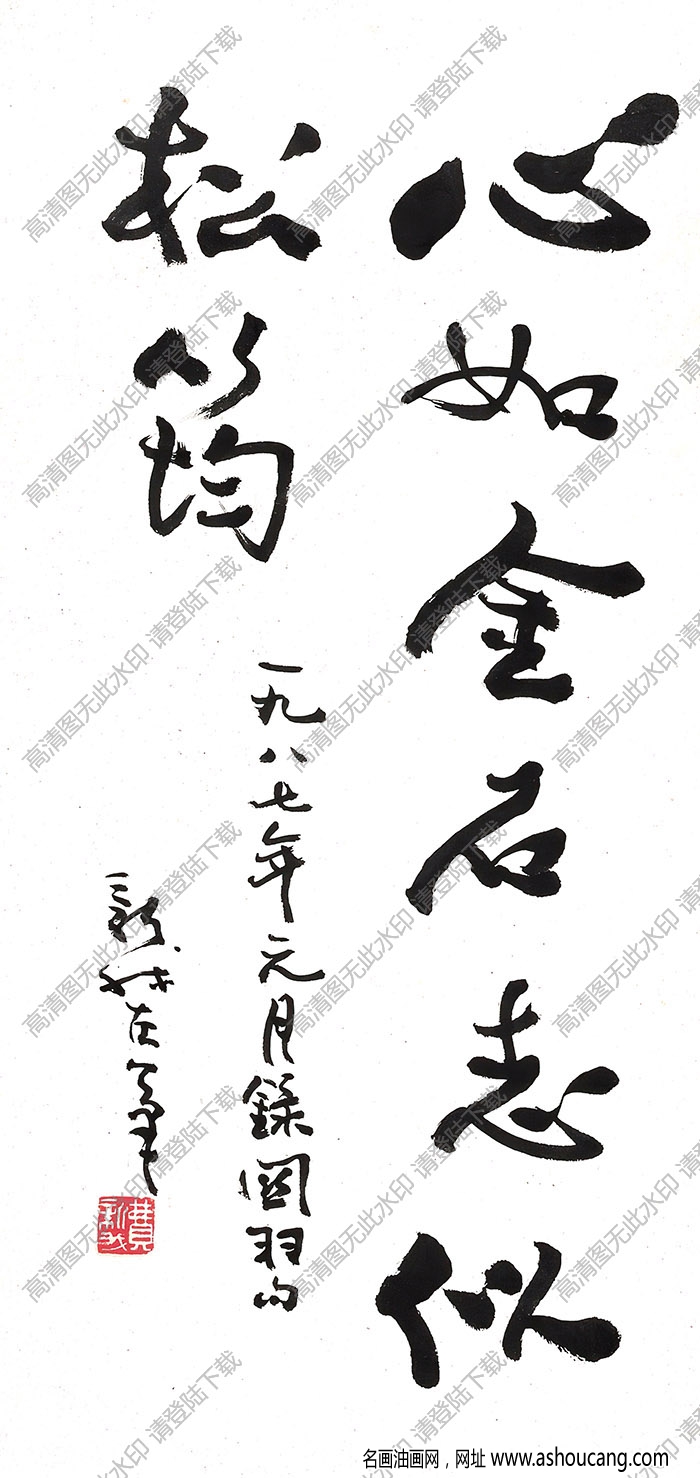 心如金石志似
松筠
一九八七年元月錄關羽句
新我左筆
費新我
高清图无此水印 请登陆下载
名画油画网，网址 www.ashoucang.com